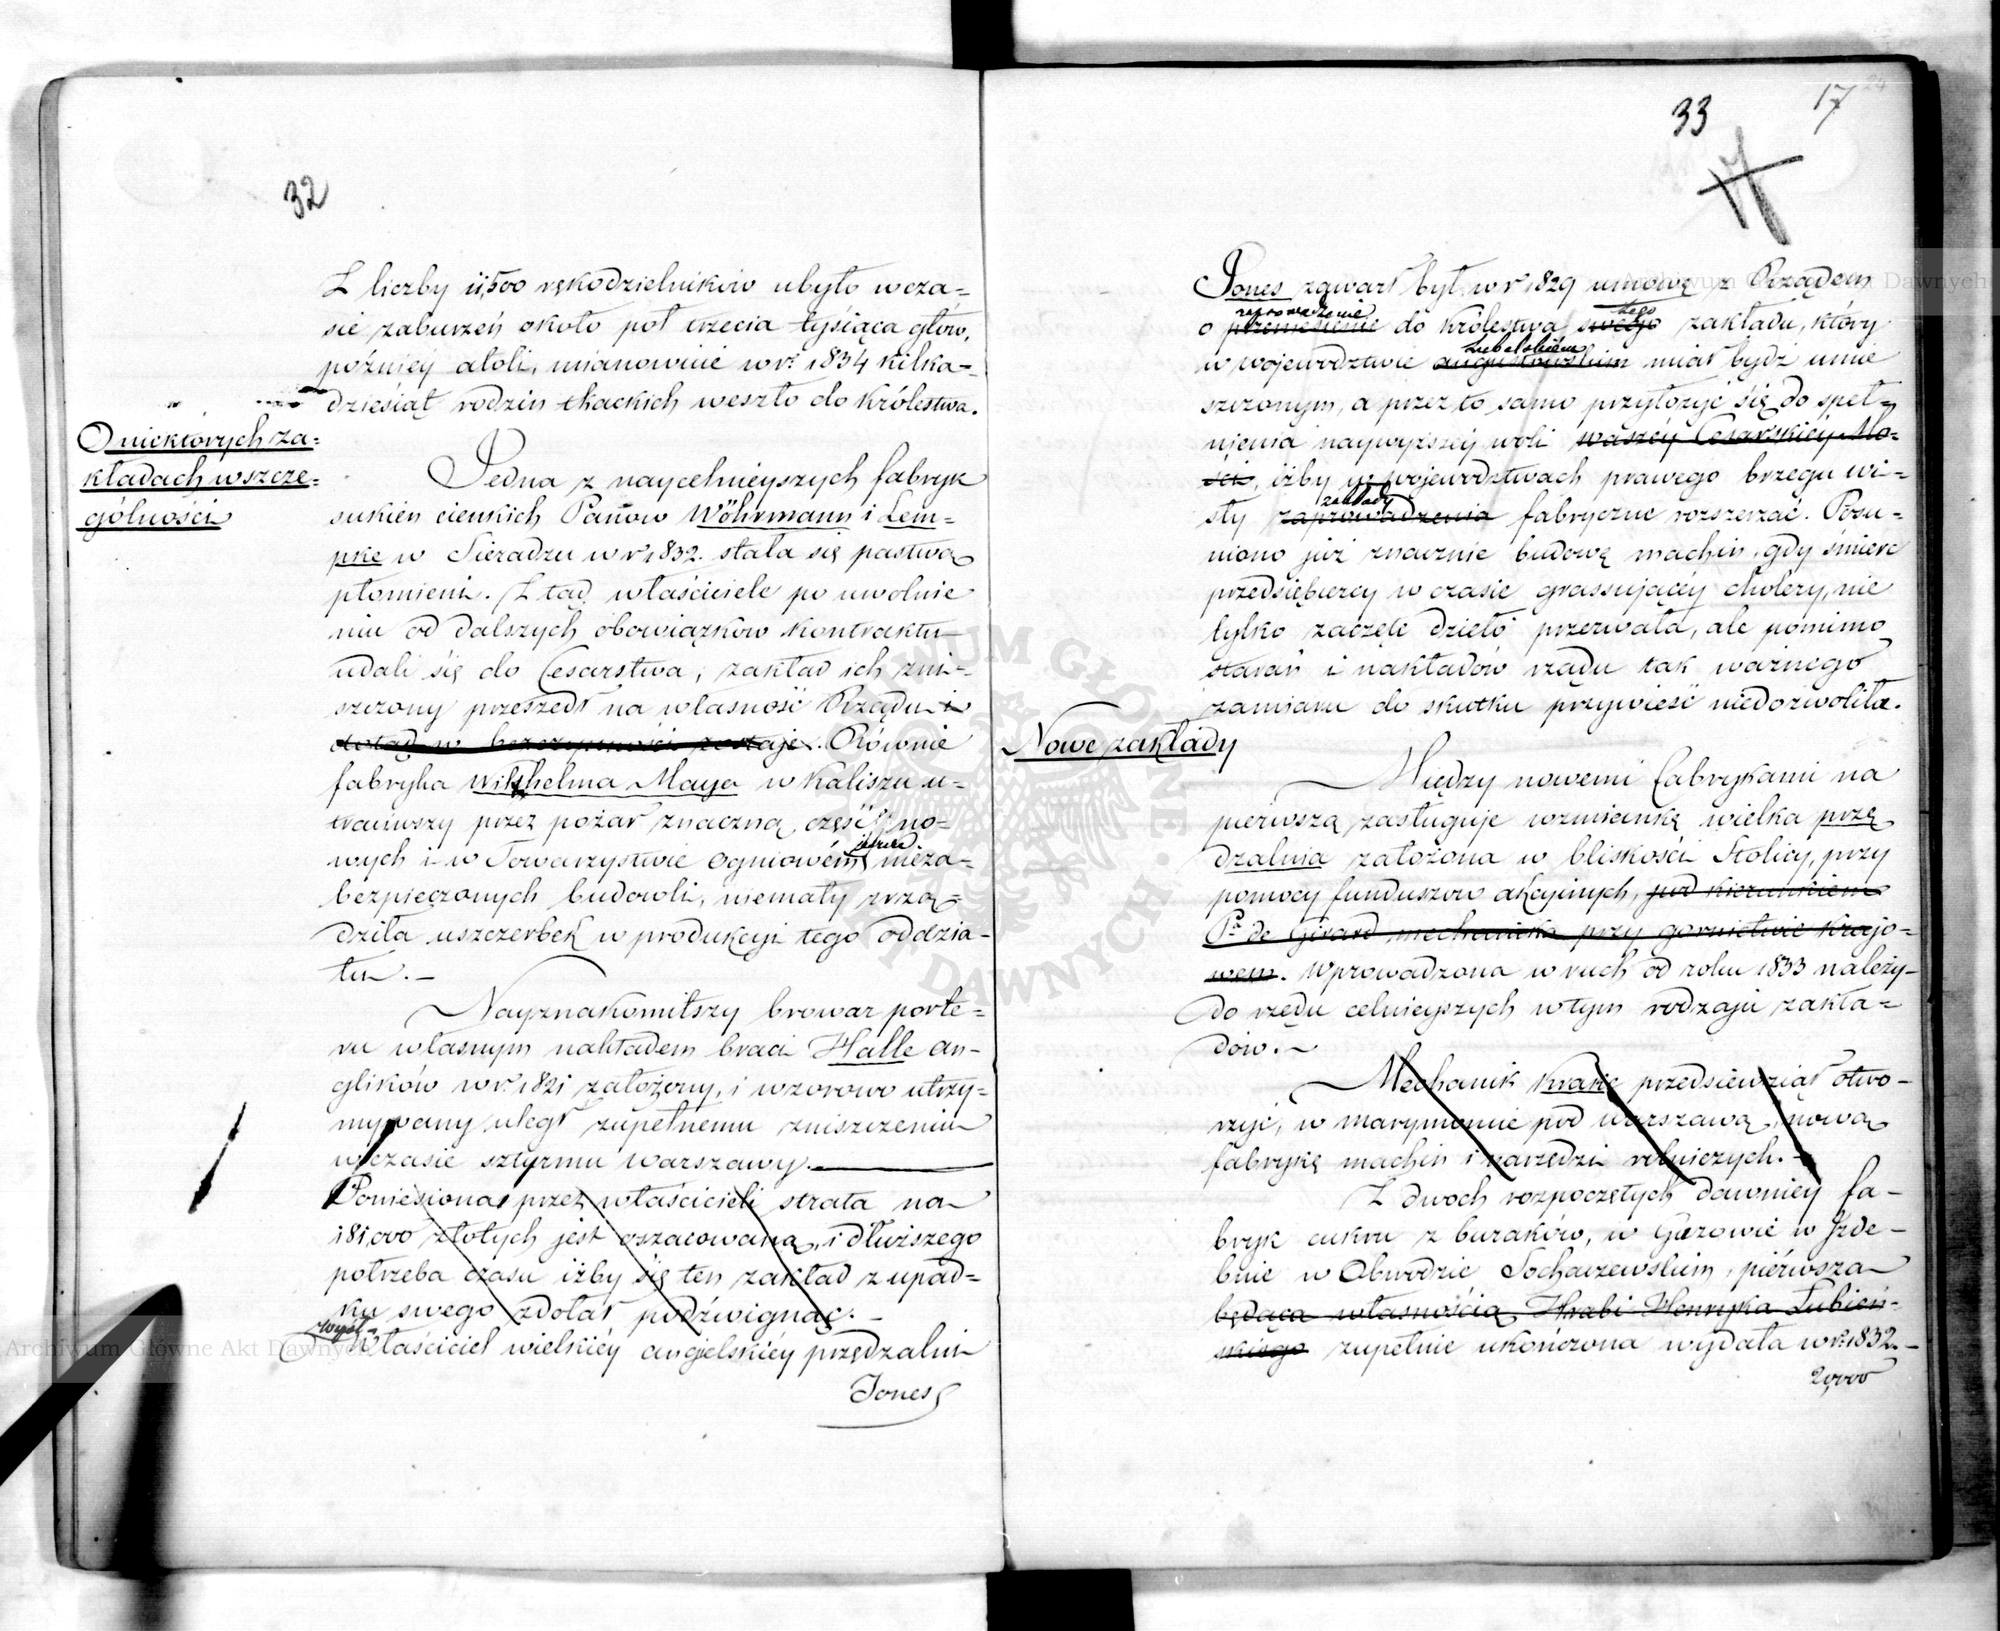 32
Z liczby 11,500 rękodzielników ubyło w cza=
sie zaburzeń około poł trzecia tysiąca głow,
poźniéy atoli, mianowicie w r. 1834 kilka=
dziesiąt rodzin tkackich weszło do Królestwa.
O niektórych za=
kładach w szcze=
gólności
Jedna z naycelnieyszych fabryk
sukien cienkich Panow Wöhrmann i Lem=
pke w Sieradzu w r. 1832. stała się pastwą
płomieni. Z tąd właściciele po uwolnie
niu od dalszych obowiązkow kontraktu
udali się do Cesarstwa; zakład ich zni=
szczony przeszedł na własność Rządu i
dotąd w bezczynności zostaje. Równie
fabryka Wilhelma Maya w Kaliszu u=
traciwszy przez pożar znaczną część no=
wych i w Towarzystwie Ogniowém jeszcze nieza=
bezpieczonych budowli, niemały zrzą=
dziła uszczerbek w produkcyi tego oddzia=
łu.—
Nayznakomitszy browar porte=
ru własnym nakładem braci Halle an=
glików w r. 1821 założony, i wzorowo utrzy=
mywany uległ zupełnemu zniszczeniu
w czasie szturmu Warszawy.
Poniesiona przez właścicieli strata na
181,000 złotych jest oszacowaną, i dłuższego
potrzeba czasu iżby się ten zakład z upad=
ku swego zdołał podźwignąć.—
Właściciel wielkiéy angielskiéy przędzalni
Jones
33
17
17
Jones zawarł był w r. 1829 umowę z Rządem
zaprowadzenie tego
o przeniesienie do Królestwa swego zakładu, który
Lubelskiém
w województwie augustowskim miał bydź umie
szczonym, a przez to samo przyłożyć się do speł=
nienia naywyższéy woli waszéy Cesarskiéy Mo=
ści, iżby w województwach prawego brzegu Wi=
zakłady
sły zaprowadzenia fabryczne rozszerzać. Posu=
niono już znacznie budowę machin, gdy śmierć
przedsiębiercy w czasie grassującéy cholery, nie
tylko zaczęte dzieło przerwała, ale pomimo
starań i nakładów rządu tak ważnego
zamiaru do skutku przywieść niedozwoliła.
Nowe zakłady
Między nowemi fabrykami na
pierwszą zasługuje wzmiankę wielka przę
dzalnia założona w bliskości Stolicy, przy
pomocy funduszow akcyinych, pod kierunkiem
P. de Girard mechanika przy gornictwie krajo=
wem. Wprowadzona w ruch od roku 1833 należy
do rzędu celnieyszych w tym rodzaju zakła=
dow.—
Mechanik przedsiewziął otwo=
rzyć, w marymoncie pod Warszawą, nową
fabrykę machin i narzędzi rolniczych.—
Z dwoch rozpoczętych dawniéy fa=
bryk cukru z buraków, w Guzowie i w Izde=
bnie w Obwodzie Sochaczewskim, piérwsza
będąca własnością Hrabi Henryka Łubień=
skiego zupełnie ukończona wydała w r. 1832.—
20,000
Archiwum Główne Akt Dawnych